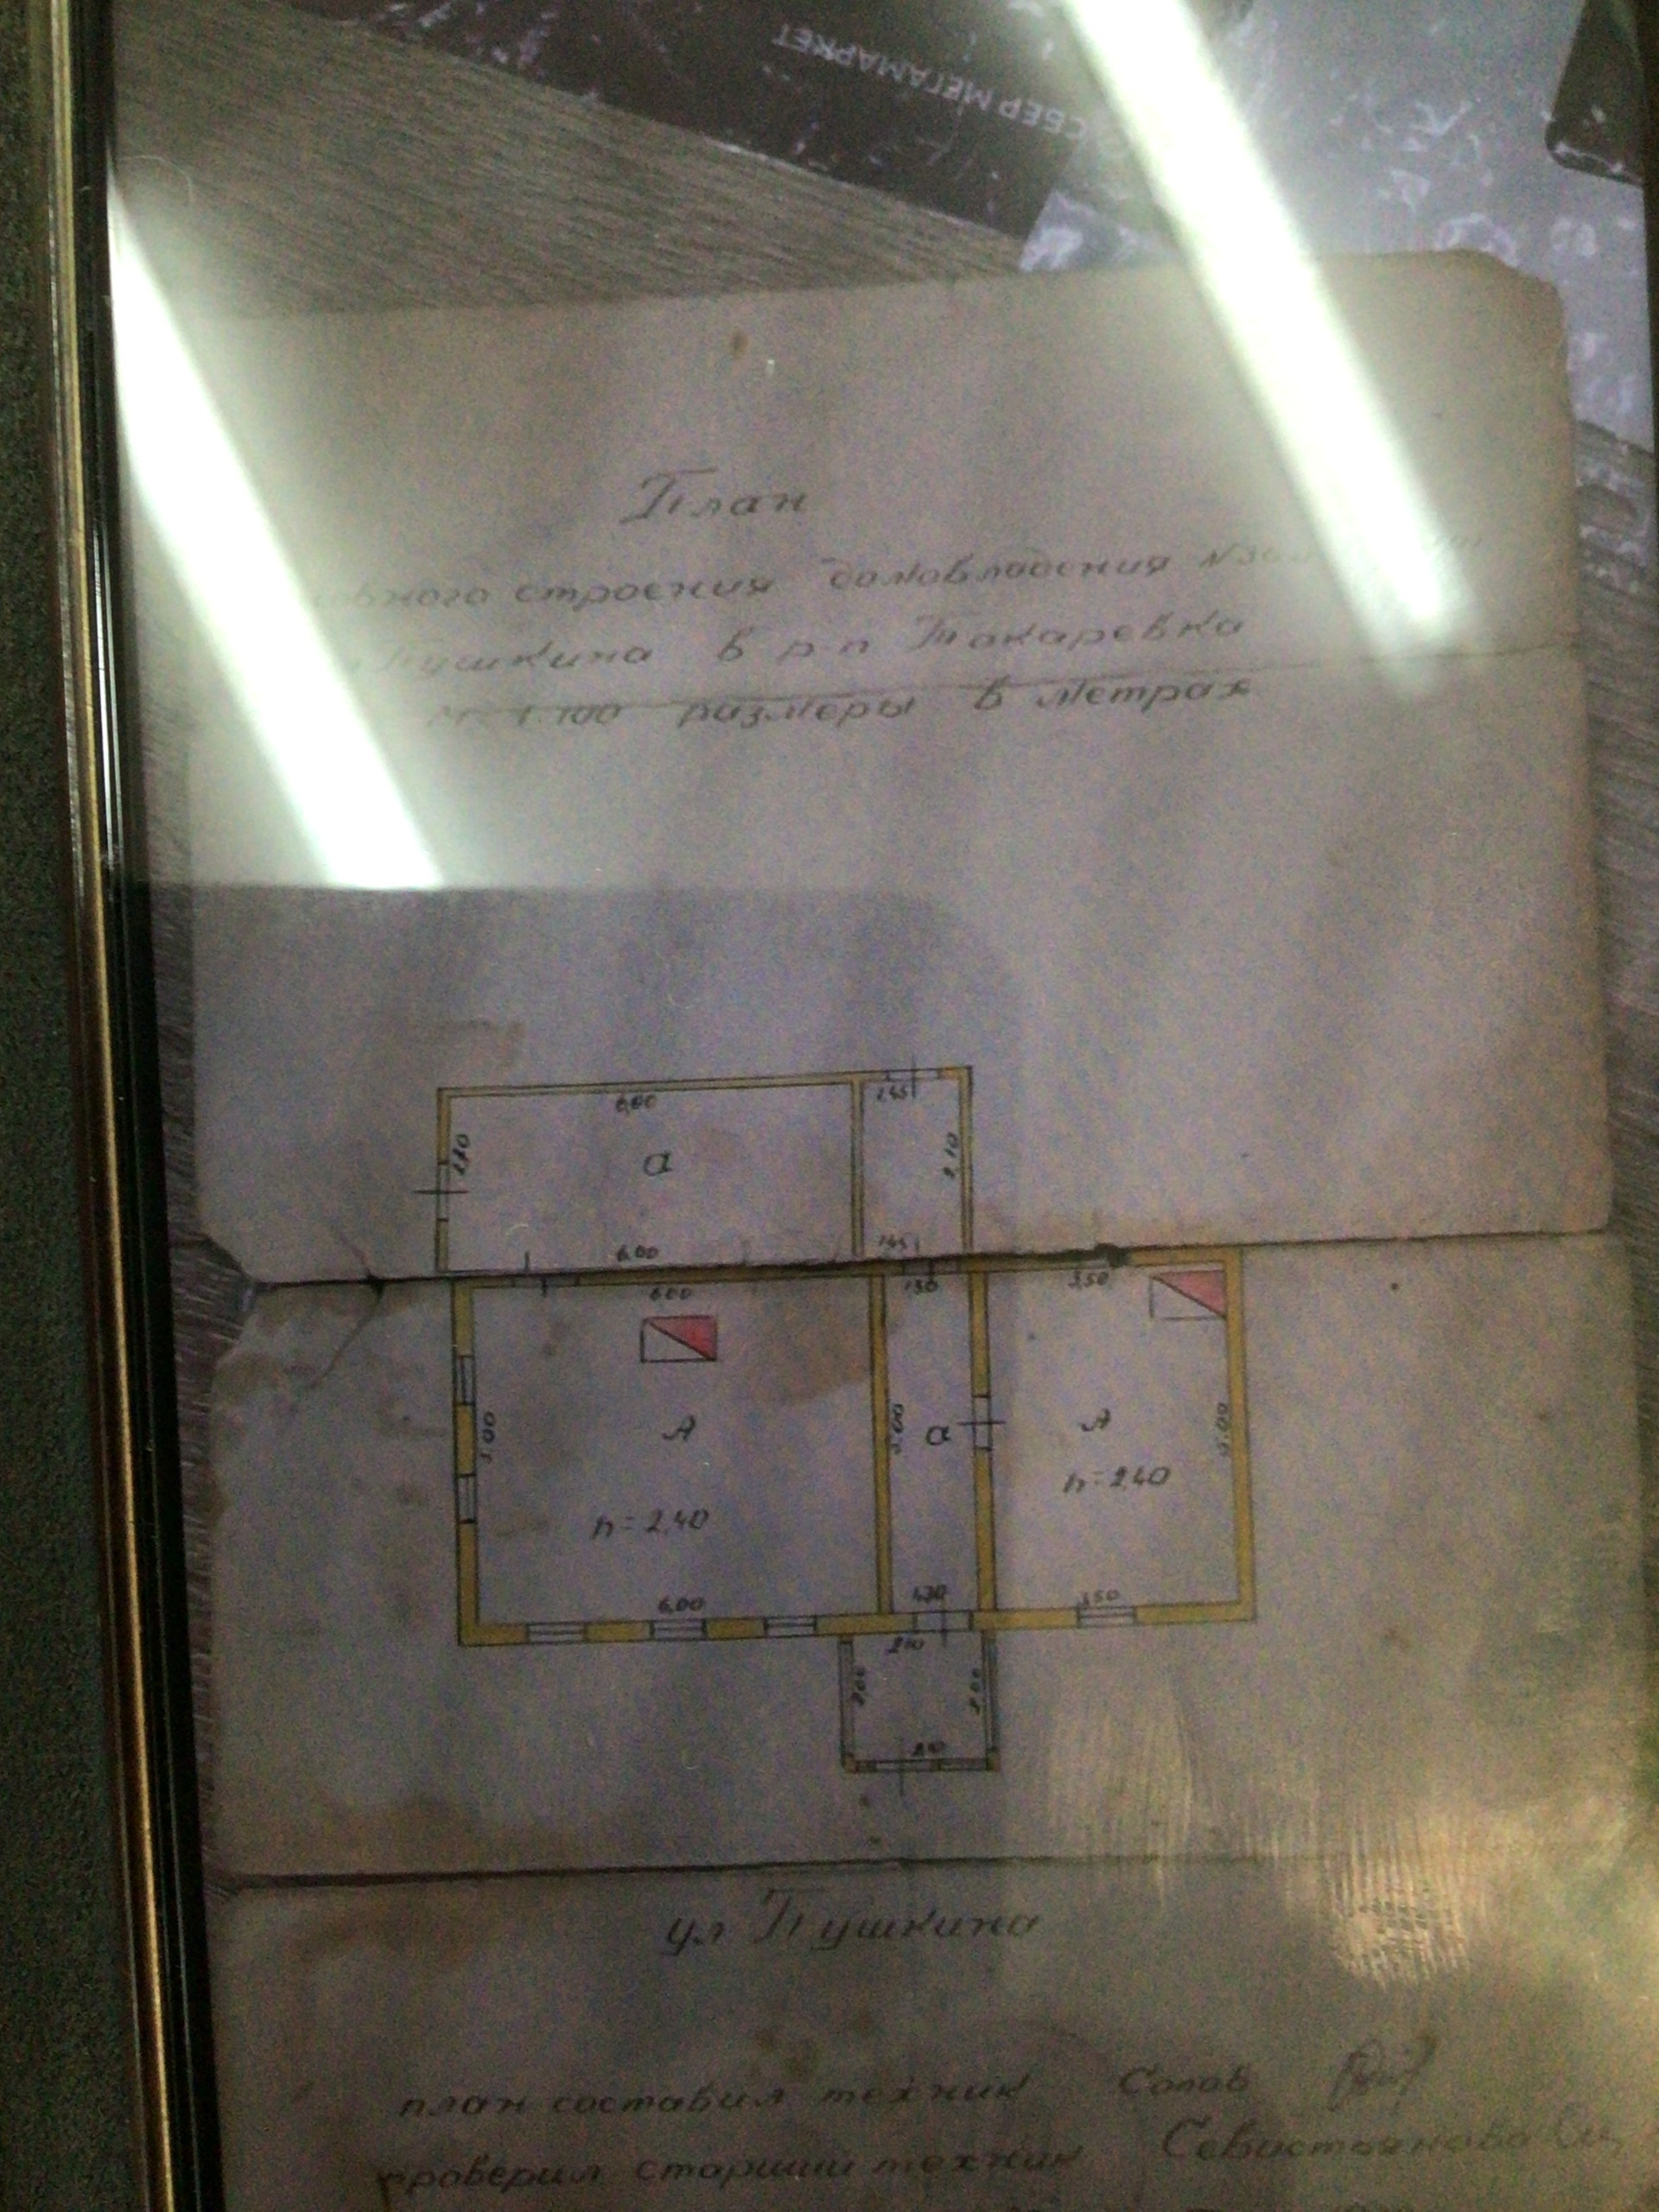 СБЕР МЕГАМАРКЕТ
План
строения домовладения
Пушкина в р.п Токаревка
М 1:100 размеры в метрах
6,00
1.45
2.10
а
2,10
6.00
1.45
6.00
1.30
3.50
5.00
А
5.00
а
А
5.00
h=2.40
h=2,40
6.00
1.30
3.50
2.10
2.00
2.00
2.10
ул Пушкина
план составил техник
проверил старший техник Севостьянова